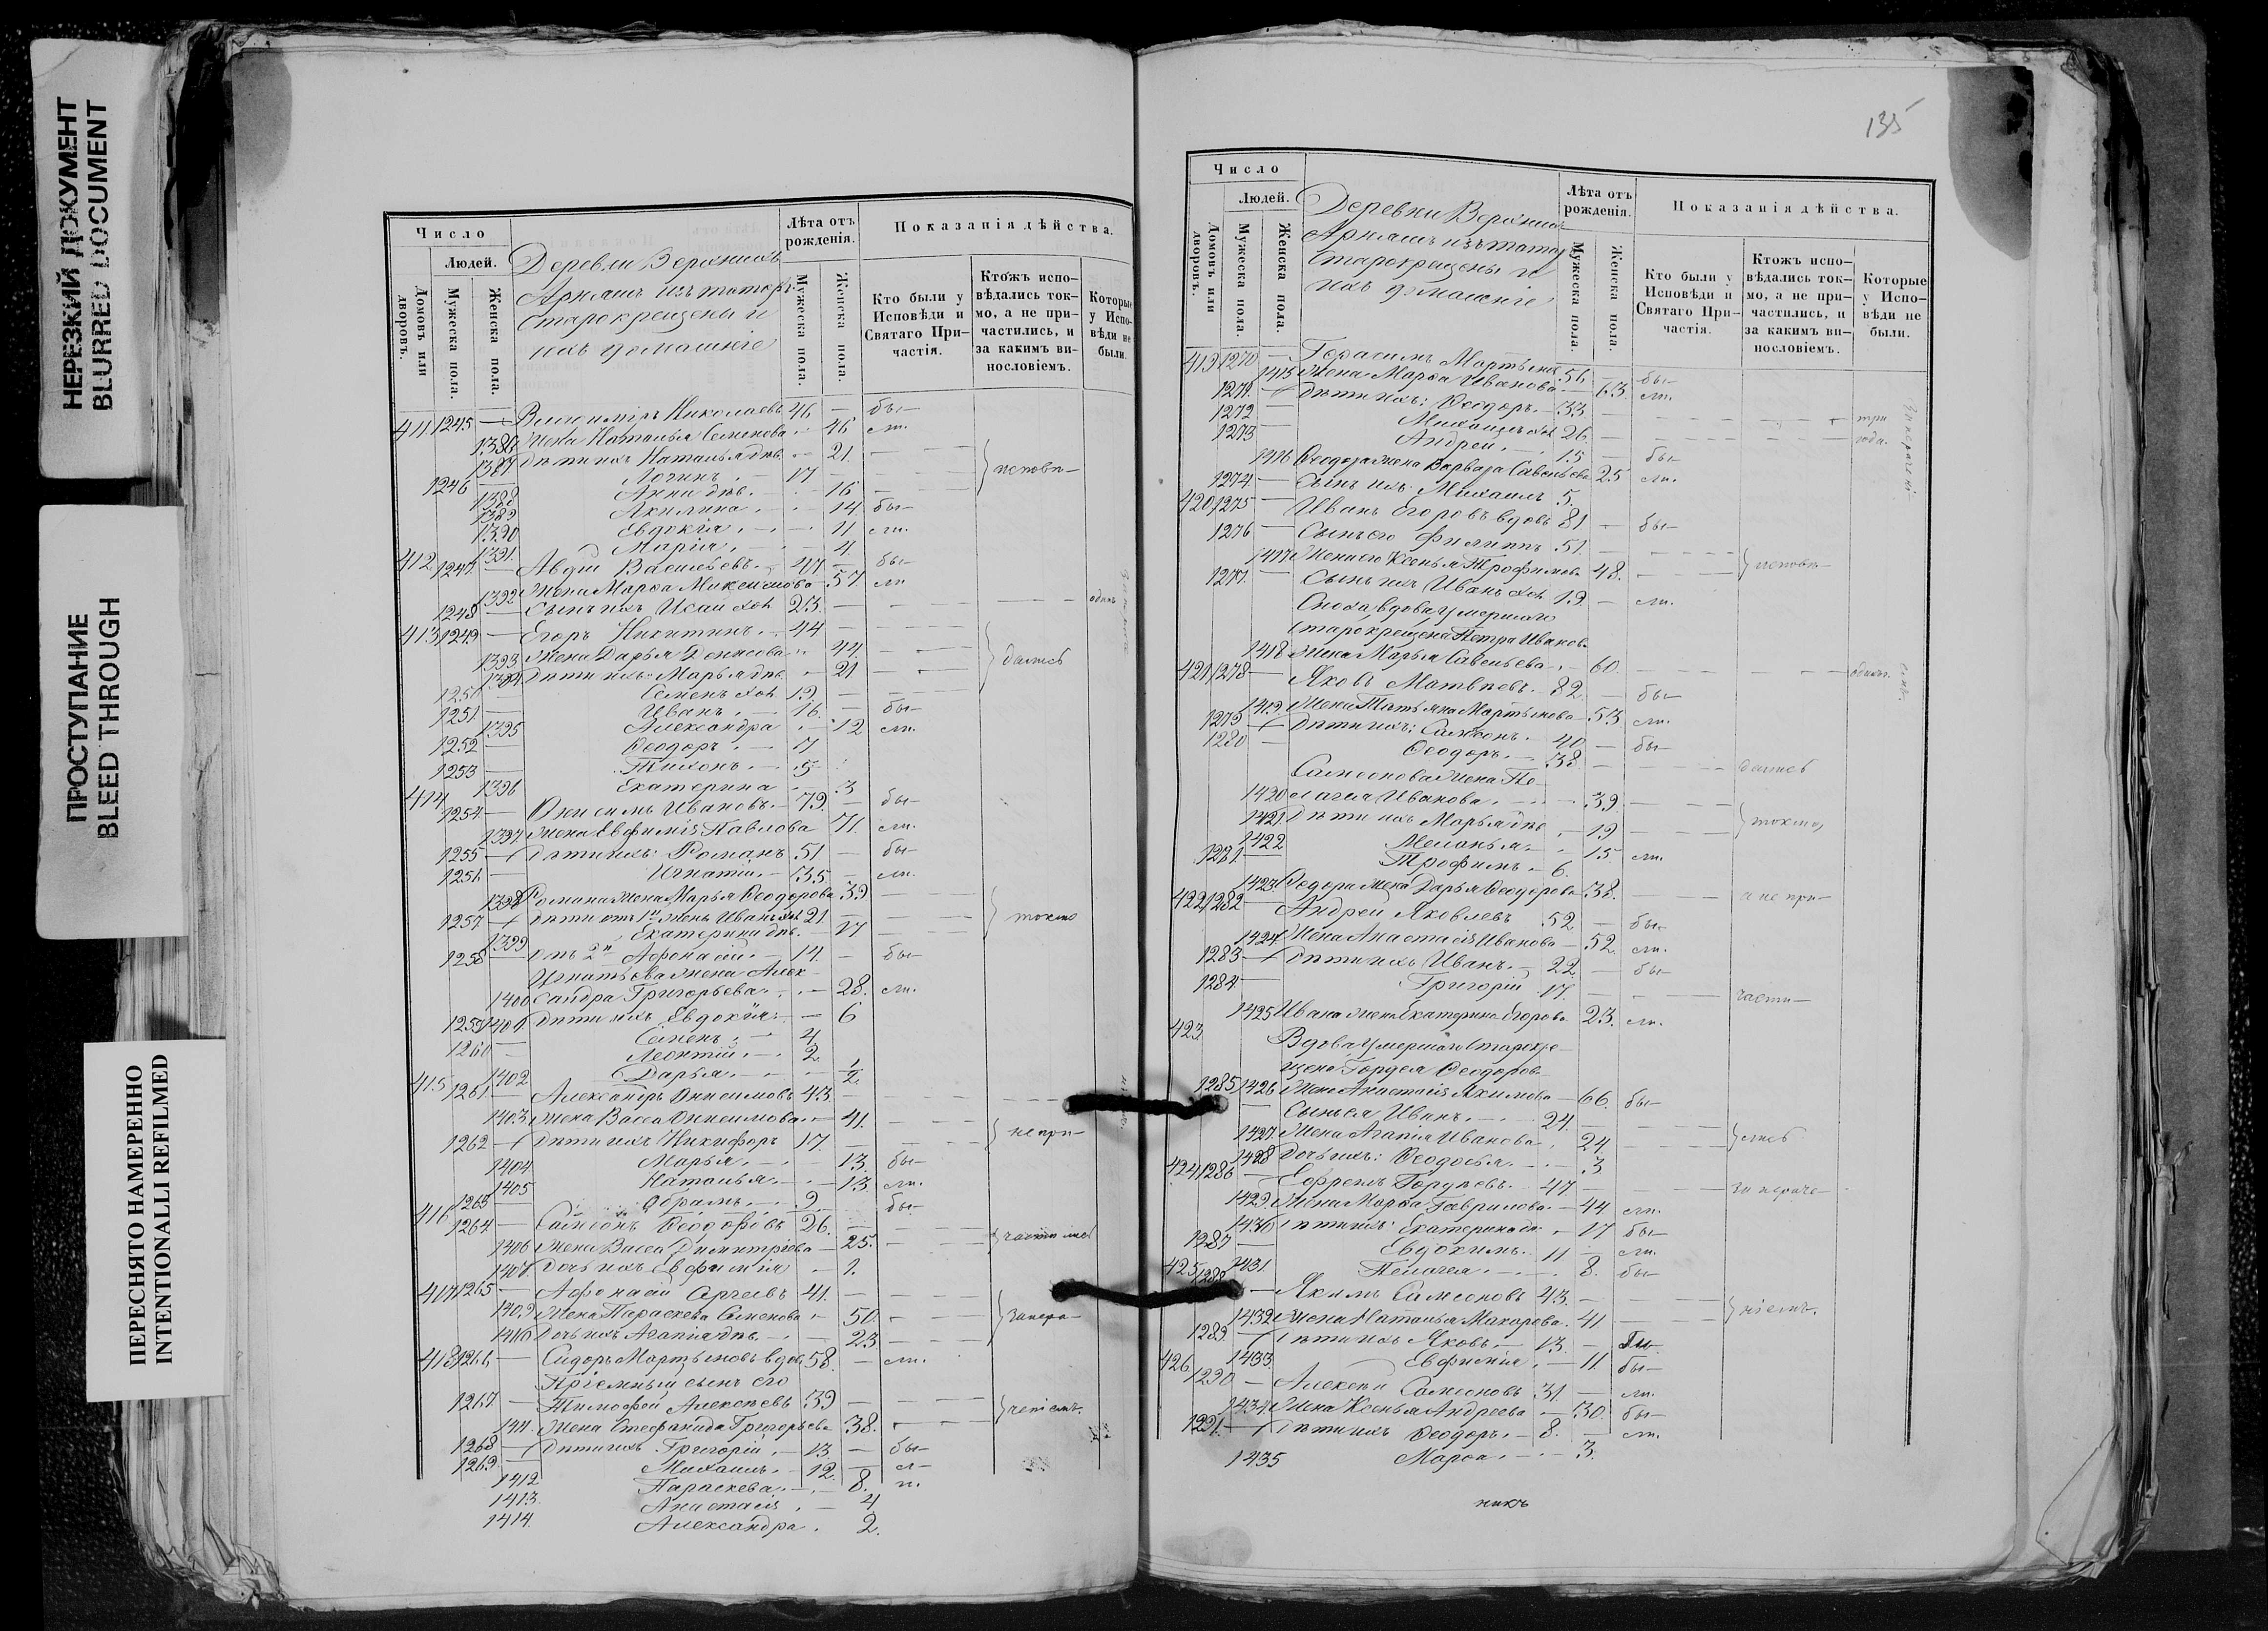 НЕРЕЗКИЙ ДОКУМЕНТ
BLURRED DOCUMENT
ПРОСТУПАНИЕ
BLEED THROUGH
ПЕРЕСНЯТО НАМЕРЕННО
INTENTIONALLI REFILMED
Число
Людей.
Домовъ или дворовъ.
Мужеска пола.
Женска пола.
Деревли Верхнихъ
Арняшъ изъ татаръ
старокрещены и
ихъ домашніе
Лѣта отъ рожденія.
Мужеска пола.
Женска пола.
Показанія дѣйства.
Кто были у Исповѣди и Святаго Причастія.
Ктожъ исповѣдались токмо, а не причастились, и за какимъ винословіемъ.
Которые у Исповѣди не были.
411 1245 — Владиміръ Николаевъ 46 — бы—
1386 Жена Наталья Семенова 46 ли.
1387 Дѣти ихъ Наталья двѣ. 21 — исповѣ—
1246 — Логинъ 17
1388 Анна двѣ. 16
1389 Акилина 14 бы—
1390 Евдокія 11 ли.
1391 Марія 4
412 1247 — Авдій Васильевъ 47 — бы—
1392 Жена Марѳа Максимова 57 ли
1248 — Сынъ ихъ Исай хол 23 — одинъ
413 1249 — Егоръ Никитинъ 44 —
1393 Жена Дарья Денисова 44 — дались
1394 Дѣти ихъ Марья двѣ 21 —
1250 — Семенъ хол 19 —
1251 — Иванъ 16 — бы—
1395 Александра 12 ли.
1252 — Ѳеодоръ 7
1253 — Тихонъ 5
1396 Екатерина 3
414 1254 — Онисимъ Ивановъ 79 — бы—
1397 Жена Евфимія Павлова 71 ли.
1255 — Дѣти ихъ: Романъ 51 — бы—
1256 — Игнатій 35 — ли.
1398 Романа жена Марья Ѳеодорова 39 —
1257 — Дѣти отъ 1й жены Иванъ хол 21 — токмо
1399 Екатерина двѣ. 17 —
1258 — отъ 2й Аѳонасій 14 — бы—
Игнатьева жена Алек-
1400 сандра Григорьева 28 ли.
1259 1401 Дѣти ихъ Евдокія 6
Семенъ 4
1260 — Леонтій 2
1402 Дарья 1/2
415 1261 — Александръ Онисимовъ 43 —
1403 Жена Васса Онисимова 41 —
1262 — Дѣти ихъ Никифоръ 17 — не при—
1404 Марья 13 бы—
1405 Наталья 13 ли.
1263 Абрамъ 9 бы—
416 1264 — Самсонъ Ѳеодоровъ 26 —
1406 Жена Васса Димитріева 25 — частились
1407 Дочь ихъ Евфимія 1
417 1265 — Аѳонасій Сергеевъ 41 —
1409 Жена Параскева Семенова 50 — занера—
1410 Дочь ихъ Агапія двѣ 23 —
418 1266 — Сидоръ Мартыновъ вдов 58 — ли.
Пріемный сынъ его
1267 — Тимофей Алексѣевъ 39 —
1411 Жена Стефанида Григорьева 38 — ченіемъ.
1268 — Дѣти ихъ Григорій 13 — бы—
1269 — Михаилъ 12 — л—
1412 Параскева 8 и.
1413 Анастасія 4
1414 Александра 2
135
Число
Людей.
Домовъ или дворовъ.
Мужеска пола.
Женска пола.
Деревни Верхнихъ
Арняшъ изъ татаръ
Старокрещены и
ихъ домашніе
Лѣта отъ рожденія.
Мужеска пола.
Женска пола.
Показанія дѣйства.
Кто были у Исповѣди и Святаго Причастія.
Ктожъ исповѣдались токмо, а не причастились, и за какимъ винословіемъ.
Которые у Исповѣди не были.
419 1270 — Герасимъ Мартыновъ 56 — бы—
1415 Жена Марѳа Иванова 63 ли.
1271 — Дѣти ихъ: Ѳеодоръ 33 — три
1272 — Михаилъ хол 26 — года.
1273 — Андрей 15 — бы—
1416 Ѳеодора жена Варвара Савельева 25 ли.
1274 — Сынъ ихъ Михаилъ 5
420 1275 — Иванъ Егоровъ вдовъ 81 — бы—
1276 — Сынъ его Филиппъ 51 —
1417 Жена его Ксенья Трофимова 48 — исповѣ—
1277 — Сынъ ихъ Иванъ хол 19 — ли.
Сноха, вдова, умершаго
Старокрещена Петра Иванов.
1418 Жена Марья Савельева 60 — одинъ.
421 1278 — Яковъ Матвѣевъ 82 — бы—
1419 Жена Татьяна Мартынова 53 ли.
1279 — Дѣти ихъ: Самсонъ 40 — бы—
1280 — Ѳеодоръ 38 — дались
Самсонова жена Пе-
1420 лагея Иванова 39 —
1421 Дѣти ихъ Марья двѣ 19 — токмо,
1422 Меланья 15 ли.
1281 — Трофимъ 6
1423 Ѳедора жена Дарья Ѳеодорова 38 — а не при—
422 1282 — Андрей Яковлевъ 52 — бы—
1424 Жена Анастасія Иванова 52 ли.
1283 — Дѣти ихъ Иванъ 22 — бы—
1284 — Григорій 17 — части—
1425 Ивана жена Екатерина Егорова 23 ли.
423 Вдова умершаго Старокре-
щена Гордея Ѳеодоров.
1285 1426 Жена Анастасія Акимова 66 бы—
— Сынъ ея Иванъ 24 —
1427 Жена Агапія Иванова 24 — лись
1428 Дочь ихъ: Ѳеодосья 3
424 1286 — Ефремъ Гордѣевъ 47 — за нераче—
1429 Жена Марѳа Гаврилова 44 ли.
1430 Дѣти ихъ: Екатерина дв. 17 бы—
1287 — Евдокимъ 11 ли.
1431 Пелагея 8 бы—
425 1288 — Якимъ Самсоновъ 43 —
1432 Жена Наталья Макарова 41 — ніемъ.
1289 — Дѣти ихъ Яковъ 13 —
1433 Евфимія 11 бы—
426 1290 — Алексѣй Самсоновъ 31 — ли.
1434 Жена Ксенья Андреева 30 бы—
1291 — Дѣти ихъ Ѳеодоръ 8 — ли.
1435 Марѳа 3
никъ